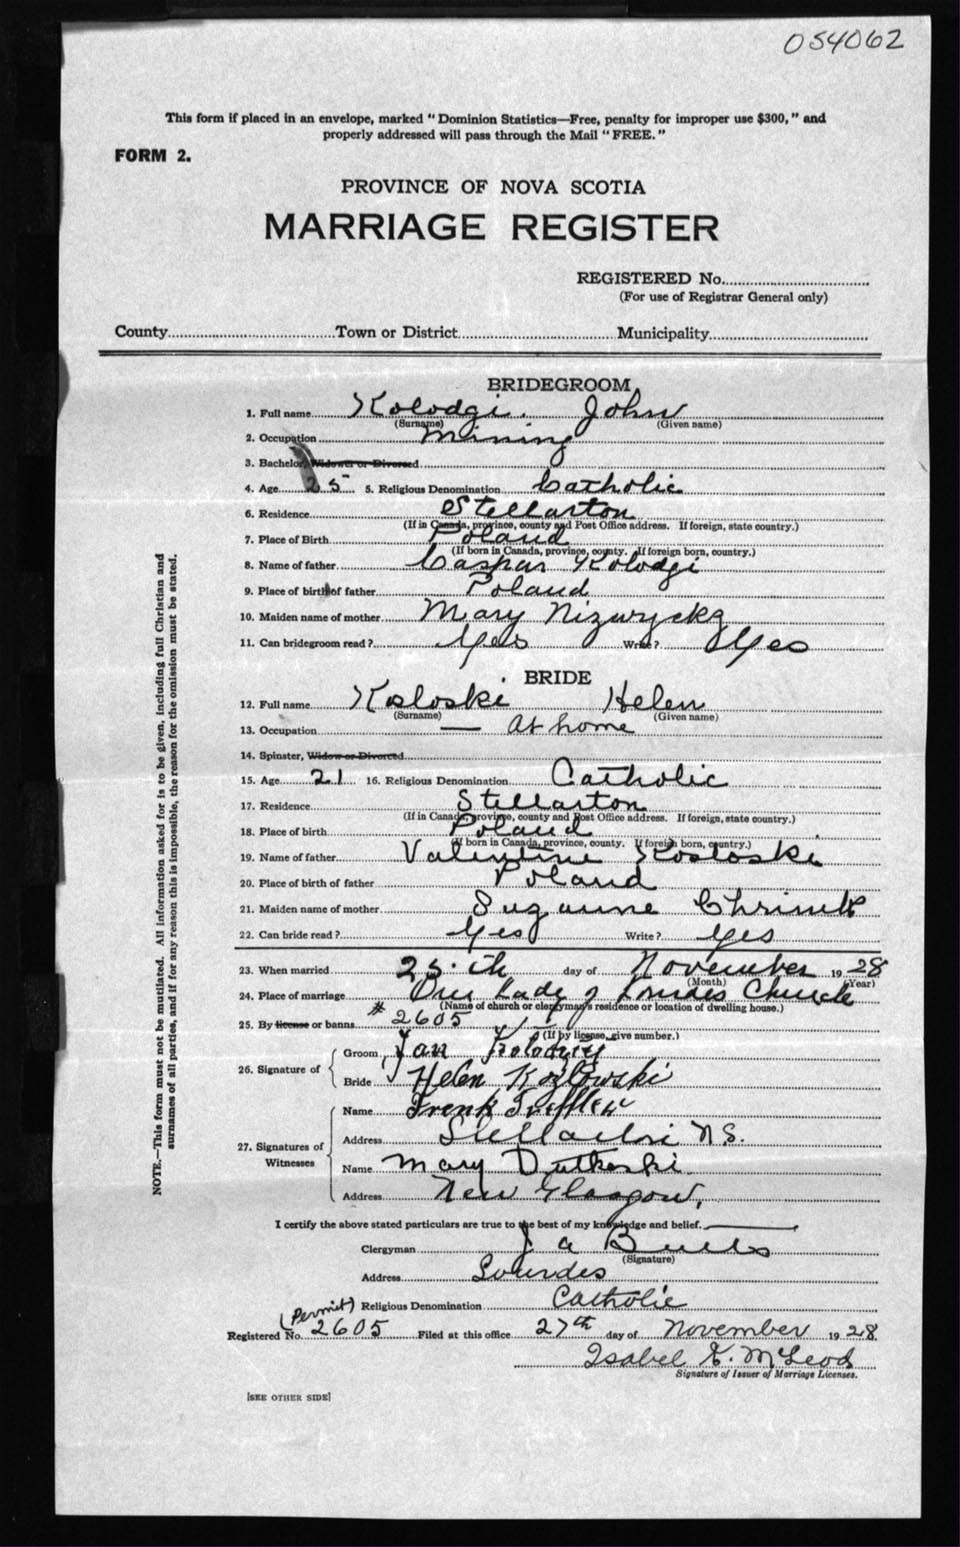 054062
This form if placed in an envelope, marked "Dominion Statistics—Free, penalty for improper use $300," and
properly addressed will pass through the Mail "FREE."
FORM 2.
PROVINCE OF NOVA SCOTIA
MARRIAGE REGISTER
REGISTERED No.
(For use of Registrar General only)
County Town or District Municipality
BRIDEGROOM
1. Full name Kolodgi John
(Surname) (Given name)
2. Occupation Mining
3. Bachelor, Widower or Divorced
4. Age 25 5. Religious Denomination Catholic
6. Residence Stellarton
(If in Canada, province, county and Post Office address. If foreign, state country.)
7. Place of Birth Poland
(If born in Canada, province, county. If foreign born, country.)
8. Name of father Caspar Kolodgi
9. Place of birth of father Poland
10. Maiden name of mother Mary
11. Can bridegroom read? Yes Write? Yes
BRIDE
12. Full name Kosloski Helen
(Surname) (Given name)
13. Occupation — At home
14. Spinster, Widow or Divorced
15. Age 21 16. Religious Denomination Catholic
17. Residence Stellarton
(If in Canada, province, county and Post Office address. If foreign, state country.)
18. Place of birth Poland
(If born in Canada, province, county. If foreign born, country.)
19. Name of father Valentine Kosloski
20. Place of birth of father Poland
21. Maiden name of mother Suzanne
22. Can bride read? Yes Write? Yes
23. When married 25th day of November 1928
(Month) (Year)
24. Place of marriage Our Lady of Lourdes Church
(Name of church or clergyman's residence or location of dwelling house.)
25. By license or banns # 2605
(If by license, give number.)
26. Signature of
Groom Jan
Bride Helen Kozlowski
27. Signatures of Witnesses
Name Frenk
Address Stellarton N.S.
Name Mary Dutkoski
Address New Glasgow,
I certify the above stated particulars are true to the best of my knowledge and belief.
Clergyman J a Butts
(Signature)
Address Lourdes
Religious Denomination Catholic
(Permit)
Registered No. 2605 Filed at this office 27th day of November 1928
Isabel K. McLeod
Signature of Issuer of Marriage Licenses.
[SEE OTHER SIDE]
NOTE.—This form must not be mutilated. All information asked for is to be given, including full Christian and
surnames of all parties, and if for any reason this is impossible, the reason for the omission must be stated.